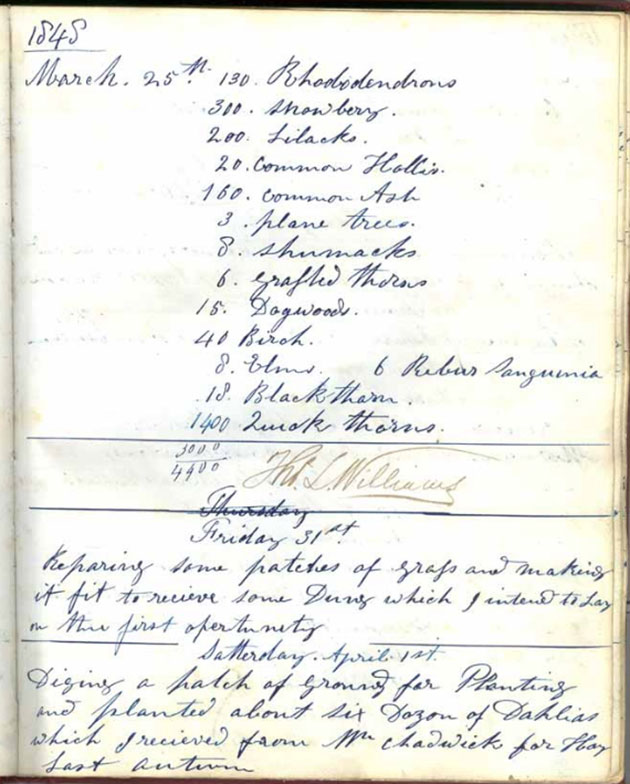 1848
March. 25th. 130. Rhododendrons
300. Snowbery.
200. Lilacks.
20. Common Hollis.
160. Common Ash
3. plane trees.
8. Shumacks
6. Grafted thorns
15. Dogwoods.
40 Birch.
8. Elms. 6 Rebus Sanguinia
18. Blackthorn.
1400 Quick thorns.
3000
4400 Thos. L. Williams
Thursday
Friday 31st
Reparing some patches of grass and making
it fit to recieve some Dung which I intend to Lay
on the first opertunety
Satterday. April 1st.
Diging a patch of Ground for Planting
and planted about six Dozon of Dahlias
which I recieved from Wm Chadwick for Hay
Last Autum